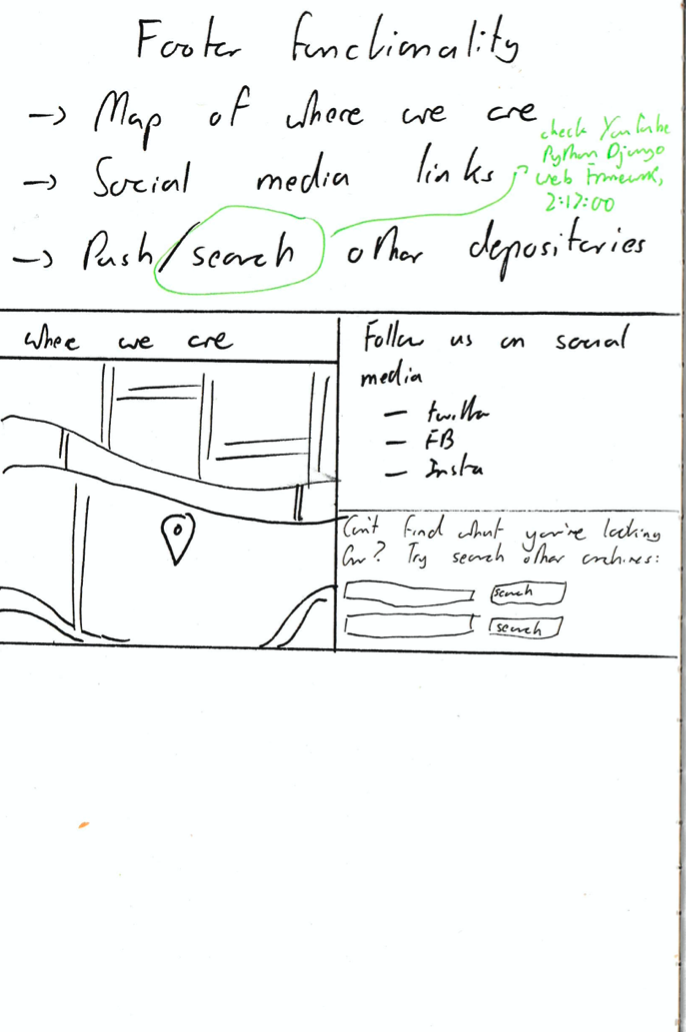 Footer functionality
→ Map of where we are
→ Social media links
→ Push/search other depositories
check YouTube
Python Django
Web Framework,
2:17:00
where we are
Follow us on social
media
— twitter
— FB
— Insta
Can't find what you're looking
for? Try search other archives:
search
search